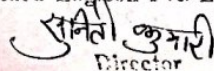 सुनिती कुमारी
Director